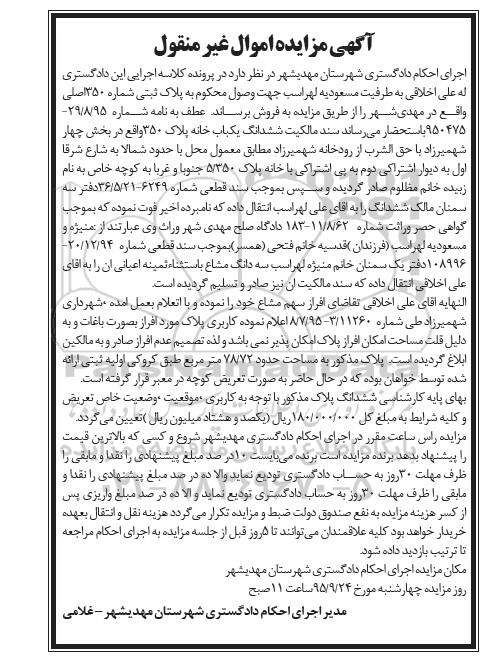 آگهی مزایده اموال غیر منقول
اجرای احکام دادگستری شهرستان مهدیشهر در نظر دارد در پرونده کلاسه اجرایی این دادگستری
له علی اخلاقی به طرفیت مسعودیه لهراسب جهت وصول محکوم به پلاک ثبتی شماره ۳۵۰اصلی
واقع در مهدی‌شهر را از طریق مزایده به فروش برساند. عطف به نامه شماره ۲۹/۸/۹۵-
۹۵۰۴۷۵باستحضار می‌رساند سند مالکیت ششدانگ یکباب خانه پلاک ۳۵۰واقع در بخش چهار
شهمیرزاد با حق الشرب از رودخانه شهمیرزاد مطابق معمول محل با حدود شمالا به شارع شرقا
اول به دیوار اشتراکی دوم به پی اشتراکی با خانه پلاک ۵/۳۵۰ جنوبا و غربا به کوچه خاص به نام
زبیده خانم مظلوم صادر گردیده و سپس بموجب سند قطعی شماره ۶۲۴۹-۳۶/۵/۲۱دفتر سه
سمنان مالک ششدانگ را به آقای علی لهراسب انتقال داده که نامبرده اخیر فوت نموده که بموجب
گواهی حصر وراثت شماره ۱۱/۸/۶۲-۱۸۳ دادگاه صلح مهدی شهر وراث وی عبارتند از :منیژه و
مسعودیه لهراسب (فرزندان )قدسیه خانم فتحی (همسر)بموجب سند قطعی شماره ۲۰/۱۲/۹۴-
۱۰۸۹۹۶دفتر یک سمنان خانم منیژه لهراسب سه دانگ مشاع باستثناءثمینه اعیانی ان را به اقای
علی اخلاقی انتقال داده که سند مالکیت ان نیز صادر و تسلیم گردیده است.
النهایه اقای علی اخلاقی تقاضای افراز سهم مشاع خود را نموده و با اعلام بعمل امده ۰شهرداری
شهمیرزاد طی شماره ۳/۱۱۲۶۰-۸/۷/۹۵ اعلام نموده کاربری پلاک مورد افراز بصورت باغات و به
دلیل قلت مساحت امکان افراز پلاک امکان پذیر نمی باشد و لذه تصمیم عدم افراز صادر و به مالکین
ابلاغ گردیده است. پلاک مذکور به مساحت حدود ۷۸/۷۲ متر مربع طبق کروکی اولیه ثبتی ارائه
شده توسط خواهان بوده که در حال حاضر به صورت تعریض کوچه در معبر قرار گرفته است.
بهای پایه کارشناسی ششدانگ پلاک مذکور با توجه به کاربری ۰موقعیت ۰وضعیت خاص تعریض
و کلیه شرایط به مبلغ کل ۱۸۰/۰۰۰/۰۰۰ریال (یکصد و هشتاد میلیون ریال)تعیین می گردد.
مزایده راس ساعت مقرر در اجرای احکام دادگستری مهدیشهر شروع و کسی که بالاترین قیمت
را پیشنهاد بدهد برنده مزایده است برنده می‌بایست ۱۰درصد مبلغ پیشنهادی را نقدا و مابقی را
ظرف مهلت ۳۰روز به حساب دادگستری تودیع نماید والا ده در صد مبلغ پیشنهادی را نقدا و
مابقی را ظرف مهلت ۳۰روز به حساب دادگستری تودیع نماید و الا ده در صد مبلغ واریزی پس
از کسر هزینه مزایده به نفع صندوق دولت ضبط و مزایده تکرار می‌گردد هزینه نقل و انتقال بعهده
خریدار خواهد بود کلیه علاقمندان می‌توانند تا ۵روز قبل از جلسه مزایده به اجرای احکام مراجعه
تا ترتیب بازدید داده شود.
مکان مزایده اجرای احکام دادگستری شهرستان مهدیشهر
روز مزایده چهارشنبه مورخ ۹۵/۹/۲۴ساعت ۱۱صبح
مدیر اجرای احکام دادگستری شهرستان مهدیشهر –غلامی